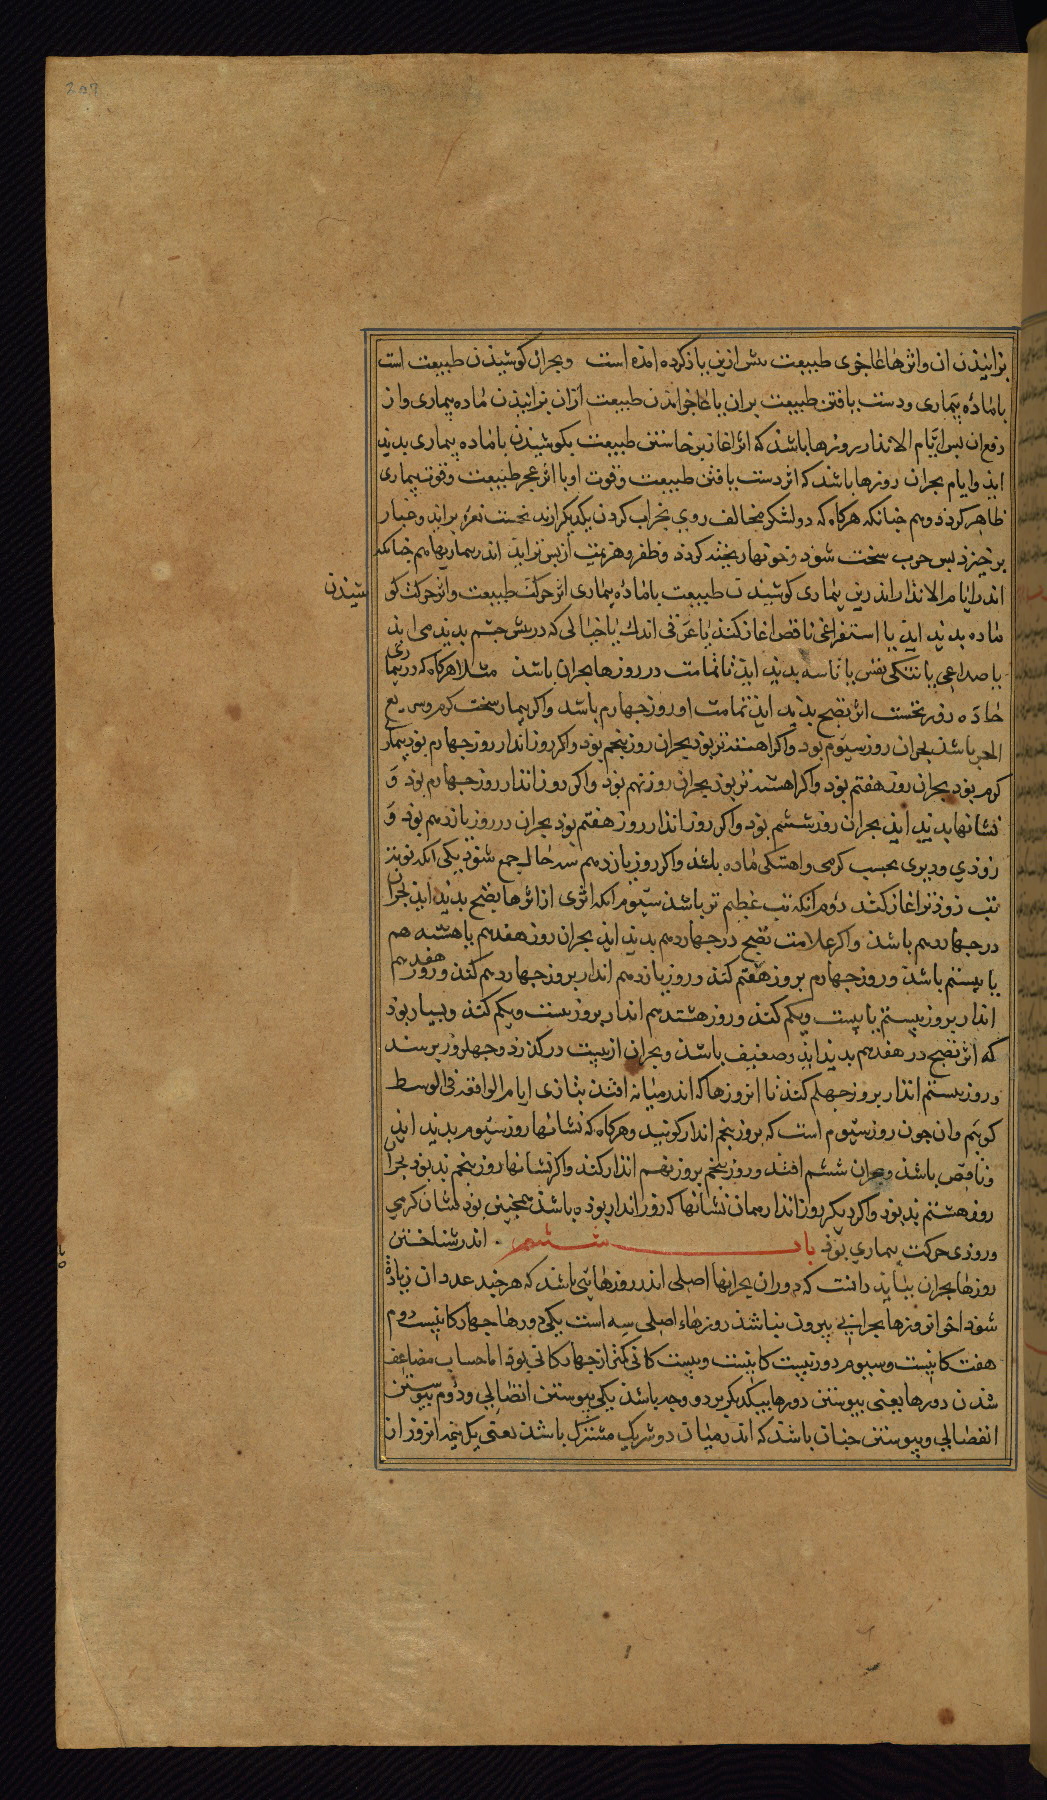 برانیدن ان واثرها عاجزی طبیعت پیش ازین یاد کرده امده است وبحران کوشیدن طبیعت است
با مادّه بیماری ودست یافتن طبیعت بران یا عاجز امدن طبیعت ازان برانیدن ماده بیماری واز
دفع ان پس ایّام الانذار روزها باشد که اثر اغاز برخاستن طبیعت بکوشیدن با ماده بیماری پدید
اید وایام بحران روزها باشد که اثر دست یافتن طبیعت وقوت او یا اثر عجز طبیعت وقوت بیماری
ظاهر کردد وهم چنانکه هرکاه که دو لشکر مخالف روی بحراب کردن یکدیکر ارند نخست نعره براید وغبار
برخیزد پس حرب سخت شود وخونها ریخته کردد وظفر وهزیمت ازپس تر اید اندر بیماریها هم چنانکه
اندر ایام الانذار اندرین بیماری کوشیدن طبیعت با مادّه بیماری اثر حرکت طبیعت واثر حرکت کو
شیدن
ماده پدید اید یا استفراغی ناقص اغاز کند یا عرقی اندک یا خیالی که در پیش چشم پدید می اید
یا صداعی یا تنکی نفس یا تاسه پدید اید تا تمامت در روزها بحران باشد مثلا هرکاه که در بیماری
حادّه روز نخست اثر نضج پدید اید تمامت او روز چهارم باشد واکر بیمار سخت کرم وسریع
الحر باشد بحران روز سیوم بود واکر اهسته تر بود بحران روز پنجم بود واکر روز انذار روز چهارم بود بیمار
کرم بود بحران روز هفتم بود واکر اهسته تر بود بحران روز نهم بود واکر روز انذار روز چهارم بود وَ
نشانها بد پدید اید بحران روز ششم بود واکر روز انذار روز هفتم بود بحران در روز یازدهم بود وَ
زودی ودیری بحسب کرمی واهستکی ماده باشد واکر روز یازدهم سه حال جمع شود یکی انکه نوبت
تب زودتر اغاز کند دوم انکه تب عظیم تر باشد سیّوم انکه اثری از اثرها نضج پدید اید بحران
در چهاردهم باشد واکر علامت نضج در چهاردهم پدید اید بحران روز هفدهم یا هشتدهم
یا بیستم باشد وروز چهارم بروز هفتم کند وروز یازدهم انذار بروز چهاردهم کند وروز هفدهم
انذار بروز بیستم یا بیست ویکم کند وروز هشتدهم انذار بروز بیست ویکم کند وبسیار بود
که اثر نضج در هفدهم پدید اید وضعیف باشد وبحران از بیست درکذرد وبچهلروز برسد
وروز بیستم انذار بروز چهلم کند تا ان روزها که اندر میانه افتد بتازی ایام الواقعه فی الوسط
کوییم وان چون روز سیّوم است که بروز پنجم انذار کوید وهرکاه که نشانها روز سیّوم پدید اید
وناقص باشد وبحران ششم افتد وروز پنجم بروز نهم انذار کند واکر نشانها روز پنجم بد بود بحران
روز هشتم بد بود واکر دیکر روز انذار همان نشانها که روز انذار بوده باشد همچنین بود نشان کرمی
وزودی حرکت بیماری بود باب ششم اندر شناختن
روزها بحران بباید دانست که دوران بحرانها اصلی اندر روزهایی باشد که هرچند عدد ان زیادَه
شود اخر ان روزها بحرانی بیرون نباشد روزهاء اصلی سه است یکی دورها چهارکانیست دوم
هفت کانیست وسیوم دور بیست کانیست وبیست کانی کمتر از چهارکانی بود اما حساب مضاعف
شدن دورها یعنی پیوستن دورها بیکدیکر بر دو وجه باشد یکی پیوستن اتصالی ودوم پیوستن
انفصالی وپیوستن چنان باشد که اندر میان دو شریک مشترک باشد یعنی یک نیمه ان روز از